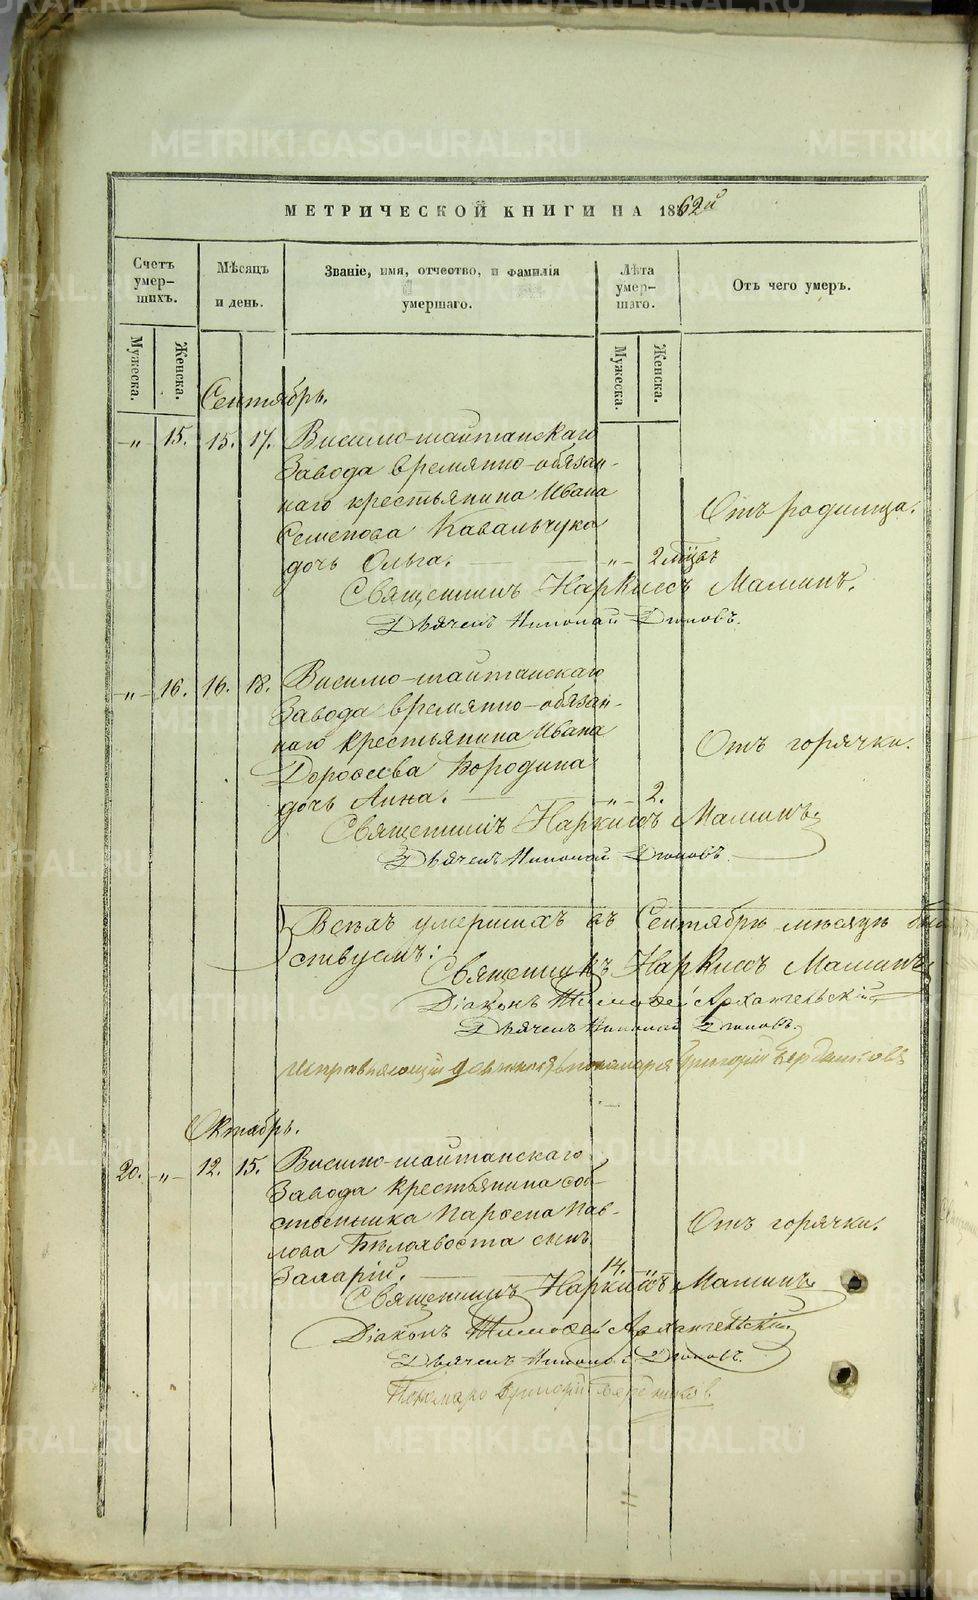 МЕТРИЧЕСКОЙ КНИГИ НА 1862й
Счетъ умер-шихъ.
Мѣсяцъ и день.
Званіе, имя, отчество, и фамилія умершаго.
Лѣта умер-шаго.
Отъ чего умеръ.
Мужеска.
Женска.
Мужеска.
Женска.
Сентябрь.
-"- 15. 15. 17. Висимо-шайтанскаго
Завода временно-обязан-
наго крестьянина Ивана
Отъ родимца.
Семенова Кавальчука
дочь Ольга. -"- 2 мѣсц
Священникъ Наркиссъ Маминъ.
Дьячекъ Николай Дюковъ.
-"- 16. 16. 18. Висимо-шайтанскаго
Завода временно-обязан-
наго крестьянина Ивана
Отъ горячки.
Доросеева Бородина
дочь Анна. -"- 2.
Священникъ Наркиссъ Маминъ
Дьячекъ Николай Дюковъ
Всѣхъ умершихъ въ Сентябрѣ мѣсяцѣ
ствуемъ:
Священникъ Наркиссъ Маминъ
Діаконъ Тимоѳей Архангельскій
Дьячекъ Николай Дюковъ.
Исправляющій должность пономаря Григорій
Октябрь.
20. -"- 12. 15. Висимо-шайтанскаго
Завода крестьянина соб-
ственника Парѳена Пав-
Отъ горячки.
лова Бѣлохвоста сынъ
Захарій. 14. -"-
Священникъ Наркиссъ Маминъ
Діаконъ Тимоѳей Архангельскій.
Дьячекъ Николай Дюковъ.
Пономарь Григорій
METRIKI.GASO-URAL.RU